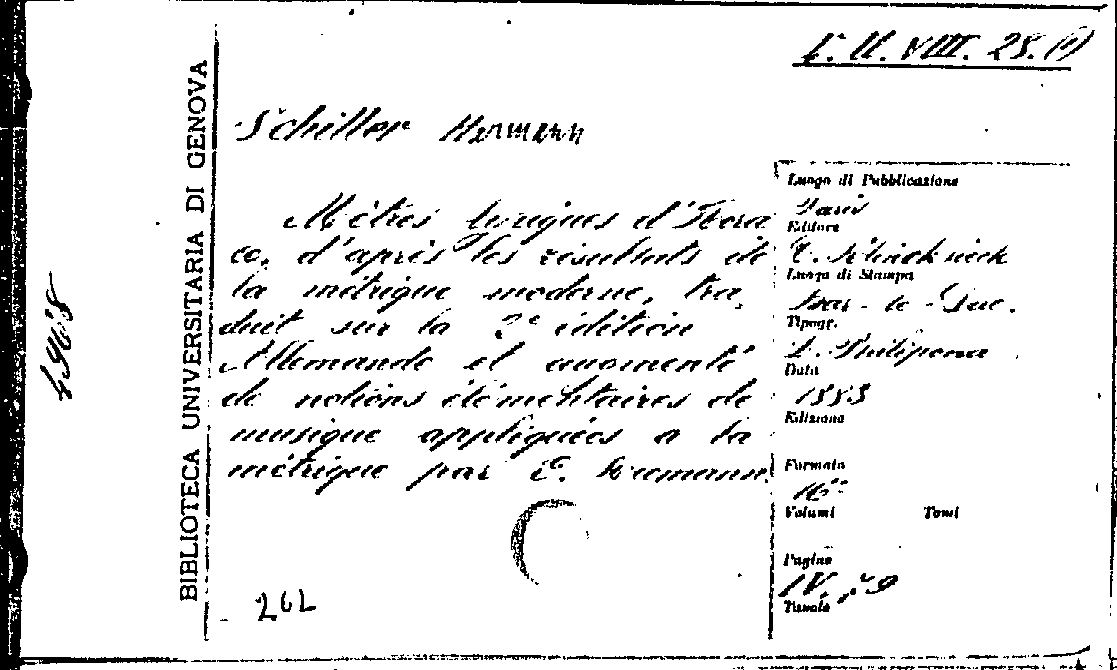 VIII. 28. (1)
Schiller Hermann
Mètres lyriques d'Hora
ce, d'après les résultats de
la métrique moderne, tra
duit sur la 2e édition
Allemande et augmenté
de notions élémentaires de
musique appliquées a la
métrique par E. Riemann.
262
Luogo di Pubblicazione
Paris
Editore
C. Klincksieck
Luogo di Stampa
Bar-le-Duc.
Tipogr.
L. Philipona
Data
1883
Edizione
Formato
16°
Volumi Tomi
Pagine
IV, 79
Tavole
BIBLIOTECA UNIVERSITARIA DI GENOVA
4968